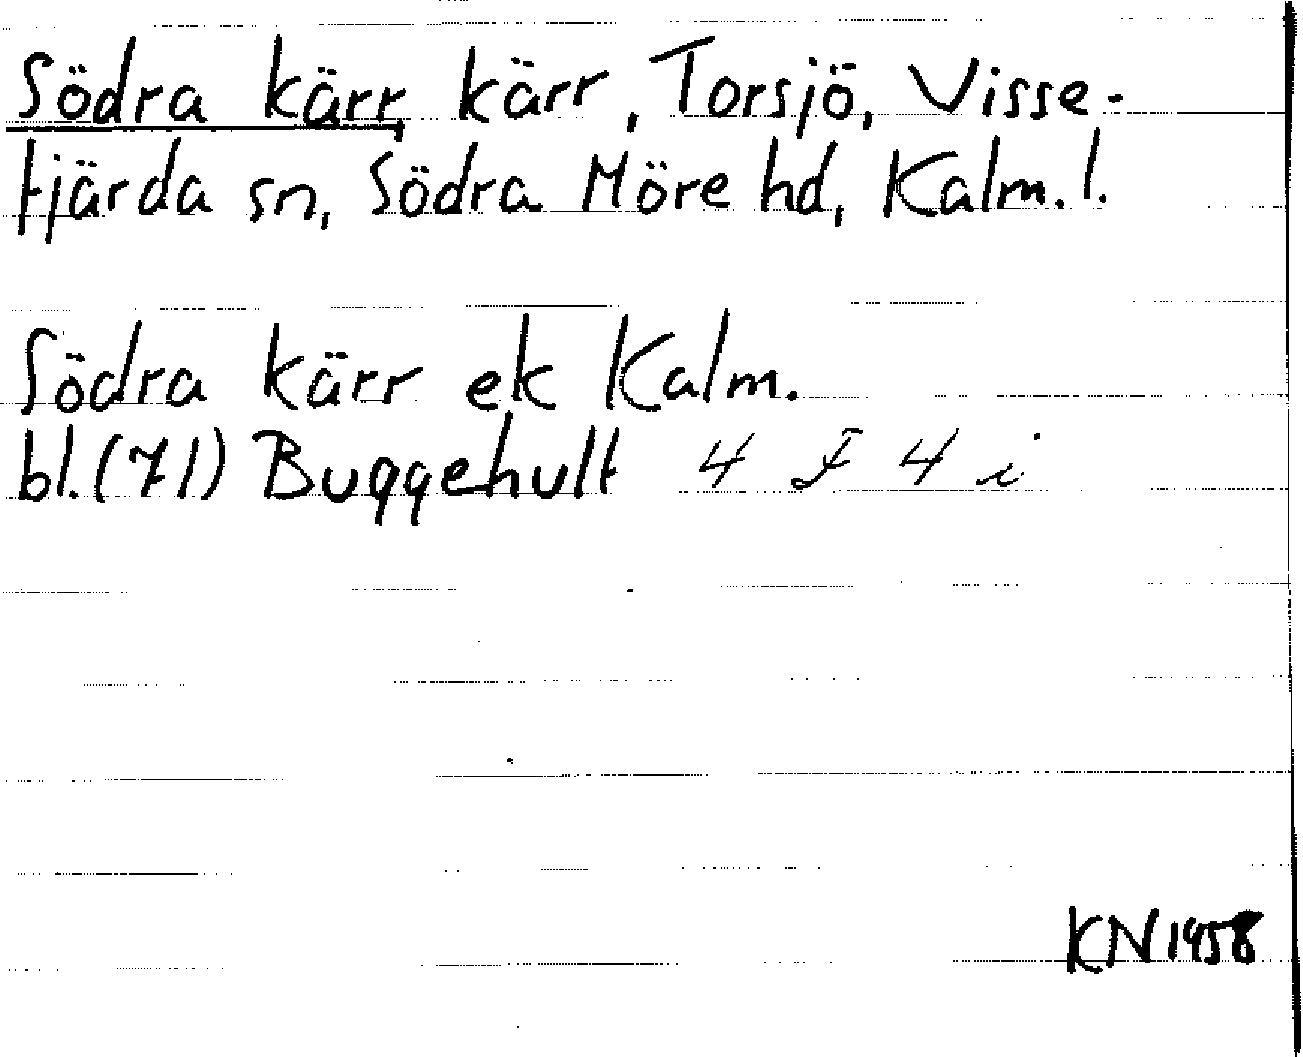 Södra kärr, kärr, Torsjö, Visse-
fjärda sn, Södra Möre hd, Kalm.l.
Södra kärr ek Kalm.
bl.(71) Buggehult 4 F 4 i
KN 1958